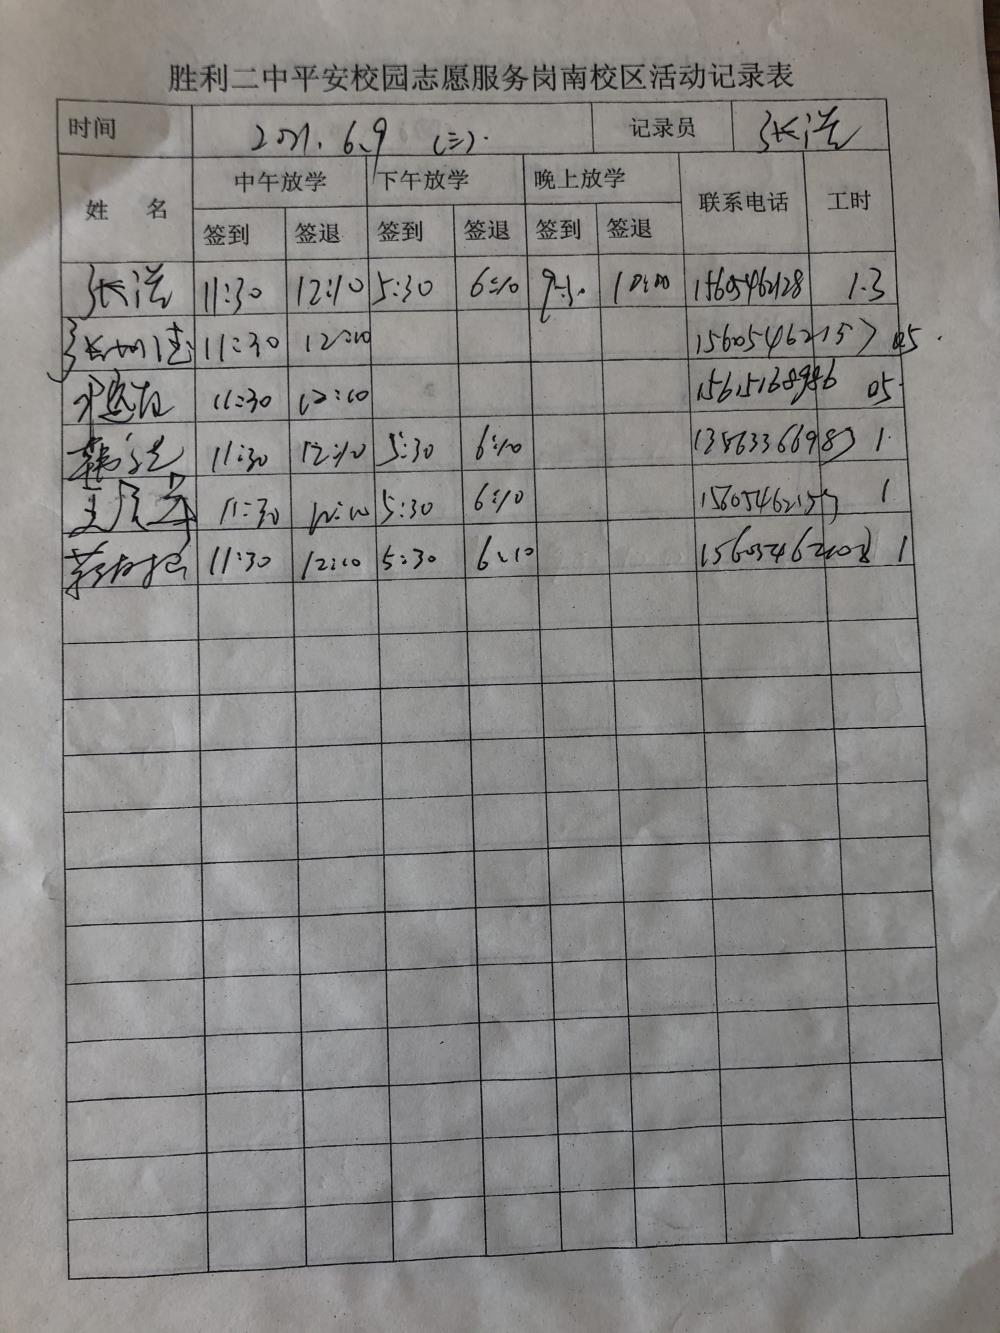 胜利二中平安校园志愿服务岗南校区活动记录表
时间 2021.6.9 (三). 记录员 张洋
姓 名 中午放学 下午放学 晚上放学 联系电话 工时
签到 签退 签到 签退 签到 签退
张洋 11:30 12:10 5:30 6:10 9:30 10:00 15605462128 1.3
11:30 12:10 05.
11:30 12:10 15615168986 05
11:30 12:10 5:30 6:10 13563366987 1.
11:30 12:10 5:30 6:10 1
11:30 12:10 5:30 6:10 1